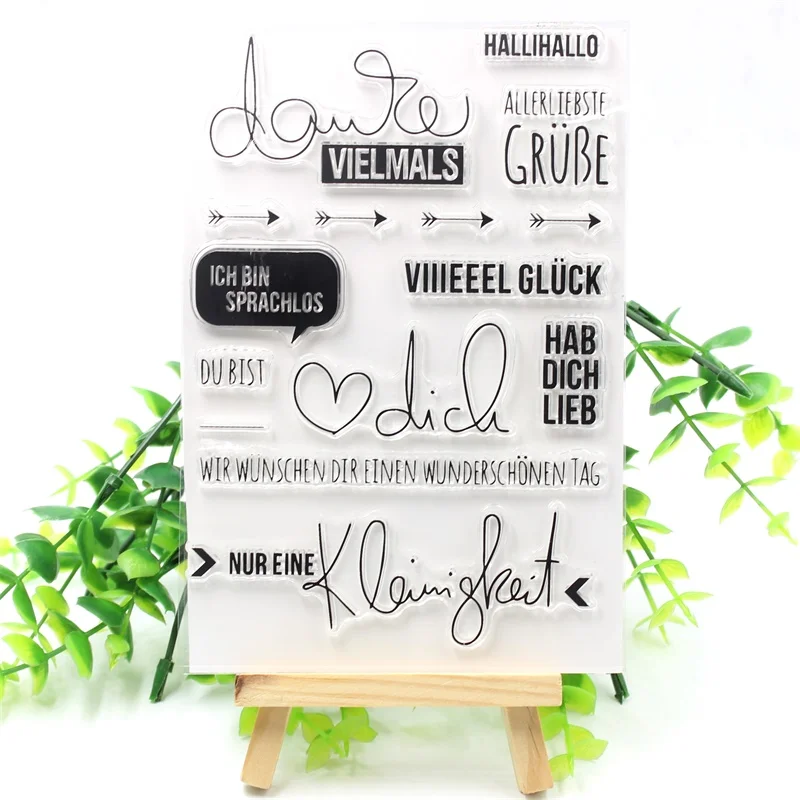 HALLIHALLO
danke
VIELMALS
ALLERLIEBSTE
GRÜßE
ICH BIN
SPRACHLOS
VIIIEEEL GLÜCK
DU BIST
dich
HAB
DICH
LIEB
WIR WÜNSCHEN DIR EINEN WUNDERSCHÖNEN TAG
NUR EINE Kleinigkeit